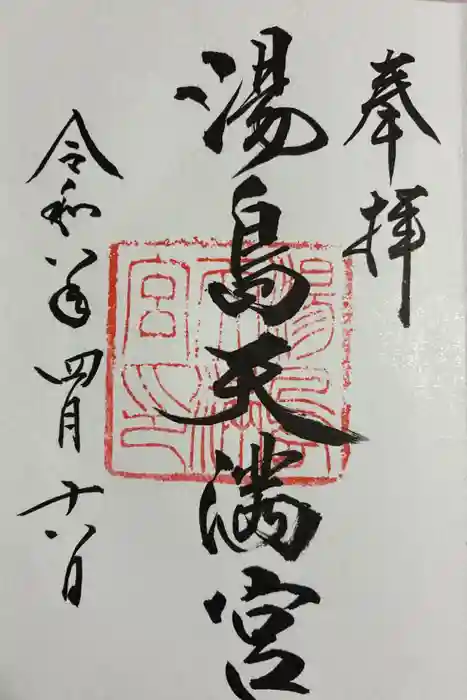 奉拝
湯島天満宮
令和八年四月十八日